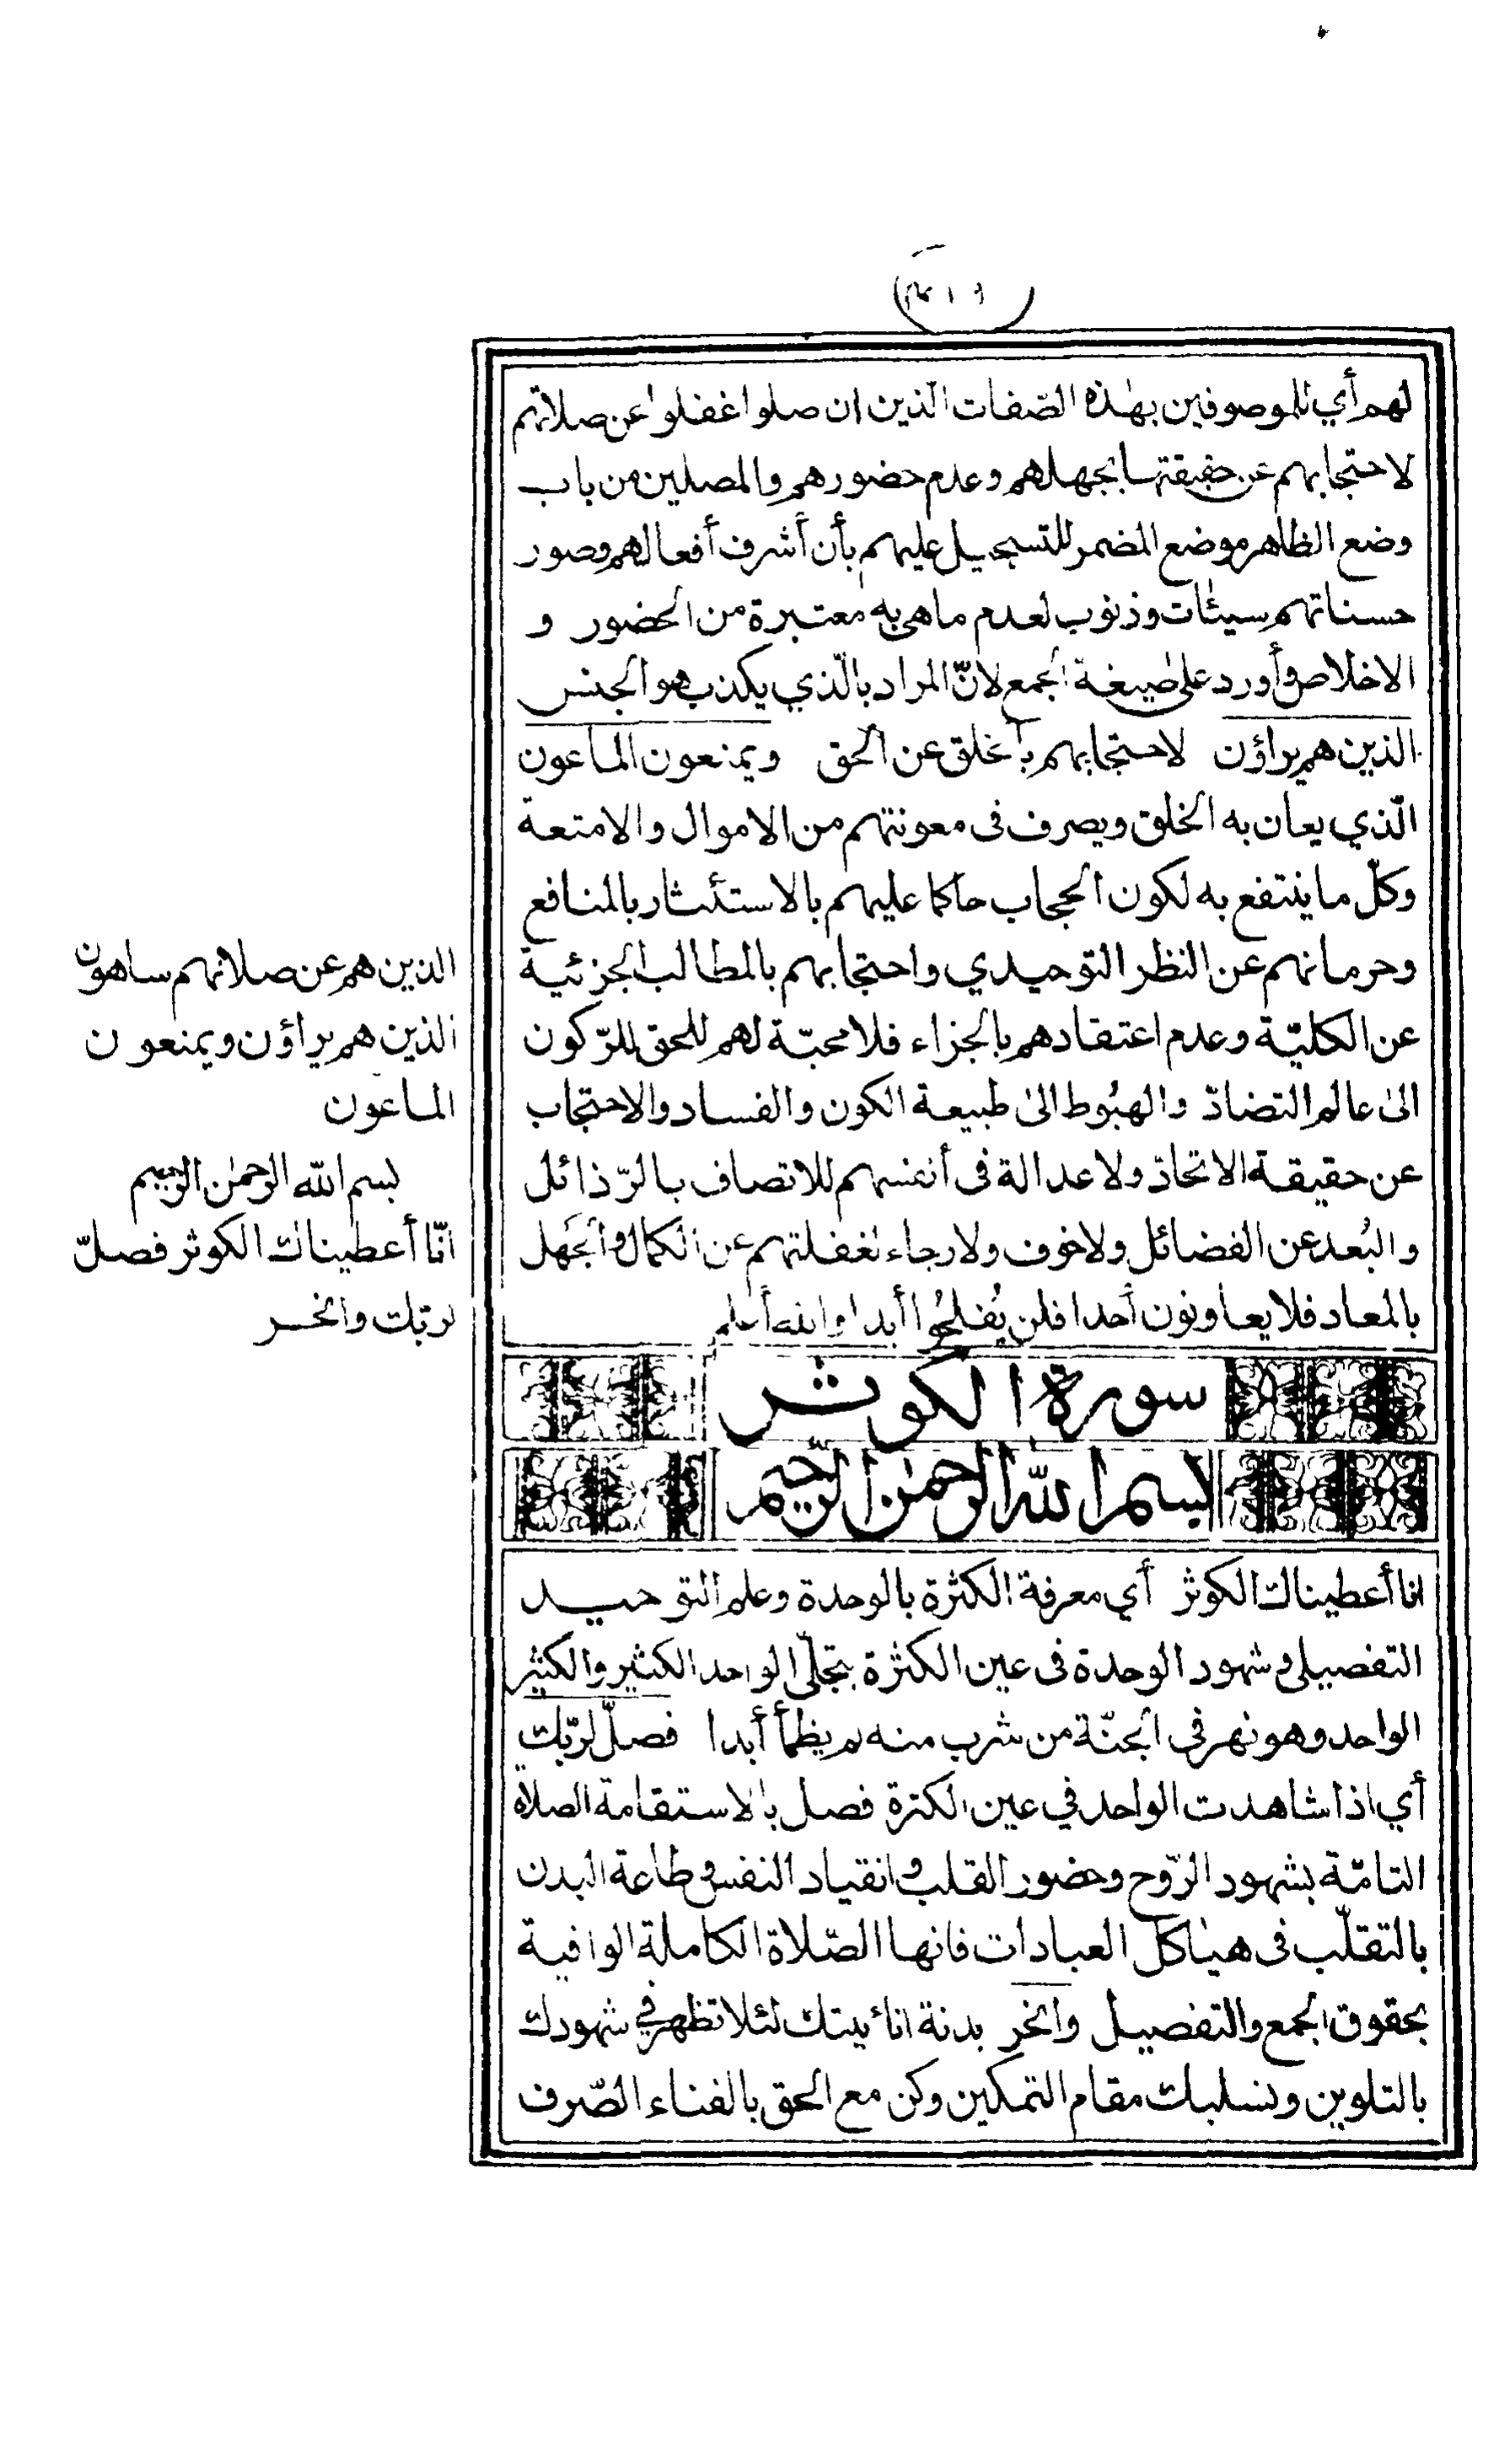 لهم أي للموصوفين بهذه الصّفات الّذين ان صلوا غفلوا عن صلاتهم
لاحتجابهم عن حقيقتها بجهلهم وعدم حضورهم والمصلين من باب
وضع الظاهر موضع المضمر للتسجيل عليهم بأن أشرف أفعالهم وصور
حسناتهم سيئات وذنوب لعدم ما هي به معتبرة من الحضور و
الاخلاص وأورد على صيغة الجمع لانّ المراد بالّذي يكذب هو الجنس
الذين هم يراؤن لاحتجابهم بالخلق عن الحق ويمنعون الماعون
الّذي يعان به الخلق ويصرف في معونتهم من الاموال والامتعة
وكلّ ما ينتفع به لكون الحجاب حاكما عليهم بالاستئثار بالمنافع
وحرمانهم عن النظر التوحيدي واحتجابهم بالمطالب الجزئية
عن الكليّة وعدم اعتقادهم بالجزاء فلا محبّة لهم للحق للرّكون
الى عالم التضادّ والهبُوط الى طبيعة الكون والفساد والاحتجاب
عن حقيقة الاتحاد ولا عدالة في أنفسهم للاتصاف بالرّذائل
والبُعد عن الفضائل ولا خوف ولا رجاء لغفلتهم عن الكمال والجهل
بالمعاد فلا يعاونون أحدا فلن يُفلحُوا أبدا والله أعلم
الذين هم عن صلاتهم ساهون
الذين هم يراؤن ويمنعون
الماعون
بسم الله الرحمن الرحيم
انّا أعطيناك الكوثر فصلّ
لربّك وانحر
سورة الكوثر
بسم الله الرحمن الرّحيم
انا أعطيناك الكوثر أي معرفة الكثرة بالوحدة وعلم التوحيد
التفصيلي وشهود الوحدة في عين الكثرة بتجلّي الواحد الكثير والكثير
الواحد وهو نهر في الجنّة من شرب منه لم يظمأ أبدا فصلّ لربّك
أي اذا شاهدت الواحد في عين الكثرة فصل بالاستقامة الصلاة
التامّة بشهود الرّوح وحضور القلب وانقياد النفس وطاعة البدن
بالتقلّب في هياكل العبادات فانها الصّلاة الكاملة الوافية
بحقوق الجمع والتفصيل وانحر بدنة انائيتك لئلا تظهر في شهودك
بالتلوين وتسلبك مقام التمكين وكن مع الحق بالفناء الصّرف